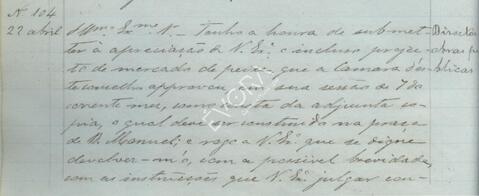 Nº 104
22 abril
Illmo. Exmo. Sr. — Tenho a honra de submet-
ter á apreciação de V. Exª o incluso projec-
to de mercado de peixe, que a Camara d'es-
te concelho approvou em sua sessão de 7 do
corrente mez, como consta da adjunta co-
pia, o qual deve ser construido na praça
de D. Manuel; e rogo a V. Exª que se digne
devolver-m'o, com a possivel brevidade,
com as instrucções que V. Exª julgar con-
Director
das
Obras pu-
blicas